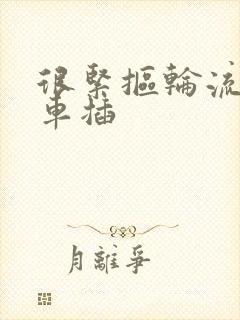 很緊摳輪流
車插
月離爭